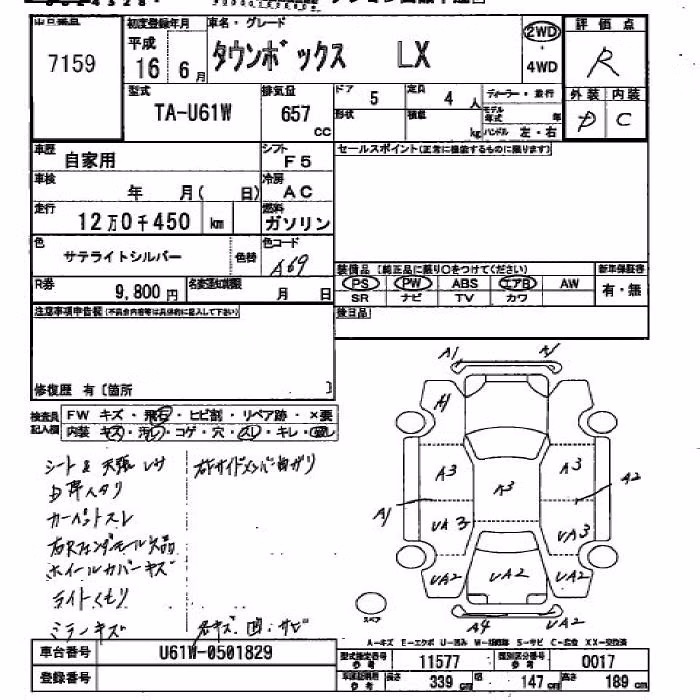 初度登録年月 車名・グレード 評価点
7159 平成 16 6月 タウンボックス LX 2WD・4WD R
型式 TA-U61W 排気量 657 cc ドア 5 定員 4 人 ディーラー・並行 外装 内装
形状 積載 kg モデル年式 年 ハンドル 左・右 D C
車歴 自家用 シフト F5 セールスポイント(正常に機能するものに限ります)
車検 年 月( 日) 冷房 AC
走行 12万0千450 km 燃料 ガソリン
色 サテライトシルバー 色替 色コード A69
装備品 (純正品に限り○をつけてください) 新年保証書
R券 9,800円 名変通知期限 月 日 PS PW ABS エアB AW 有・無
SR ナビ TV カワ
注意事項申告欄(不具合内容等は具体的に記入して下さい) 後日品
修復歴 有〔箇所 〕
検査員記入欄 FW キズ・飛石・ヒビ割・リペア跡・×要
内装 キズ・汚レ・コゲ・穴・スレ・キレ・
シート & 天張
カーペットスレ
ホイールカバーキズ
ライトくもり
ミラーキズ
A1
A1
A3 A3 A3 A2
A1 UA3 UA3
UA2 UA2 UA2
スペア A4 UA2
A-キズ E-エクボ U-凹み W-補修跡 S-サビ C-腐食 XX-交換済
車台番号 U61W-0501829 型式指定番号 参考 11577 類別区分番号 参考 0017
登録番号 車庫証明用 参考 長さ 339 cm 幅 147 cm 高さ 189 cm